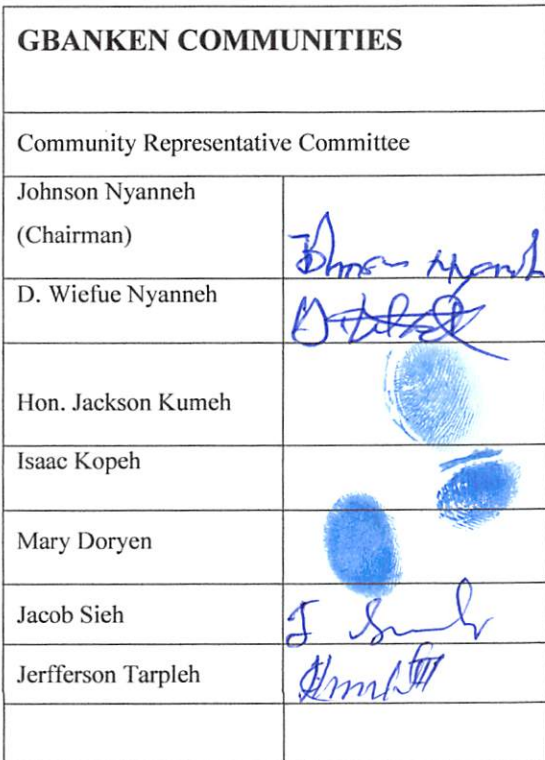 GBANKEN COMMUNITIES
Community Representative Committee
Johnson Nyanneh
(Chairman)
D. Wiefue Nyanneh
Hon. Jackson Kumeh
Isaac Kopeh
Mary Doryen
Jacob Sieh
Jerfferson Tarpleh